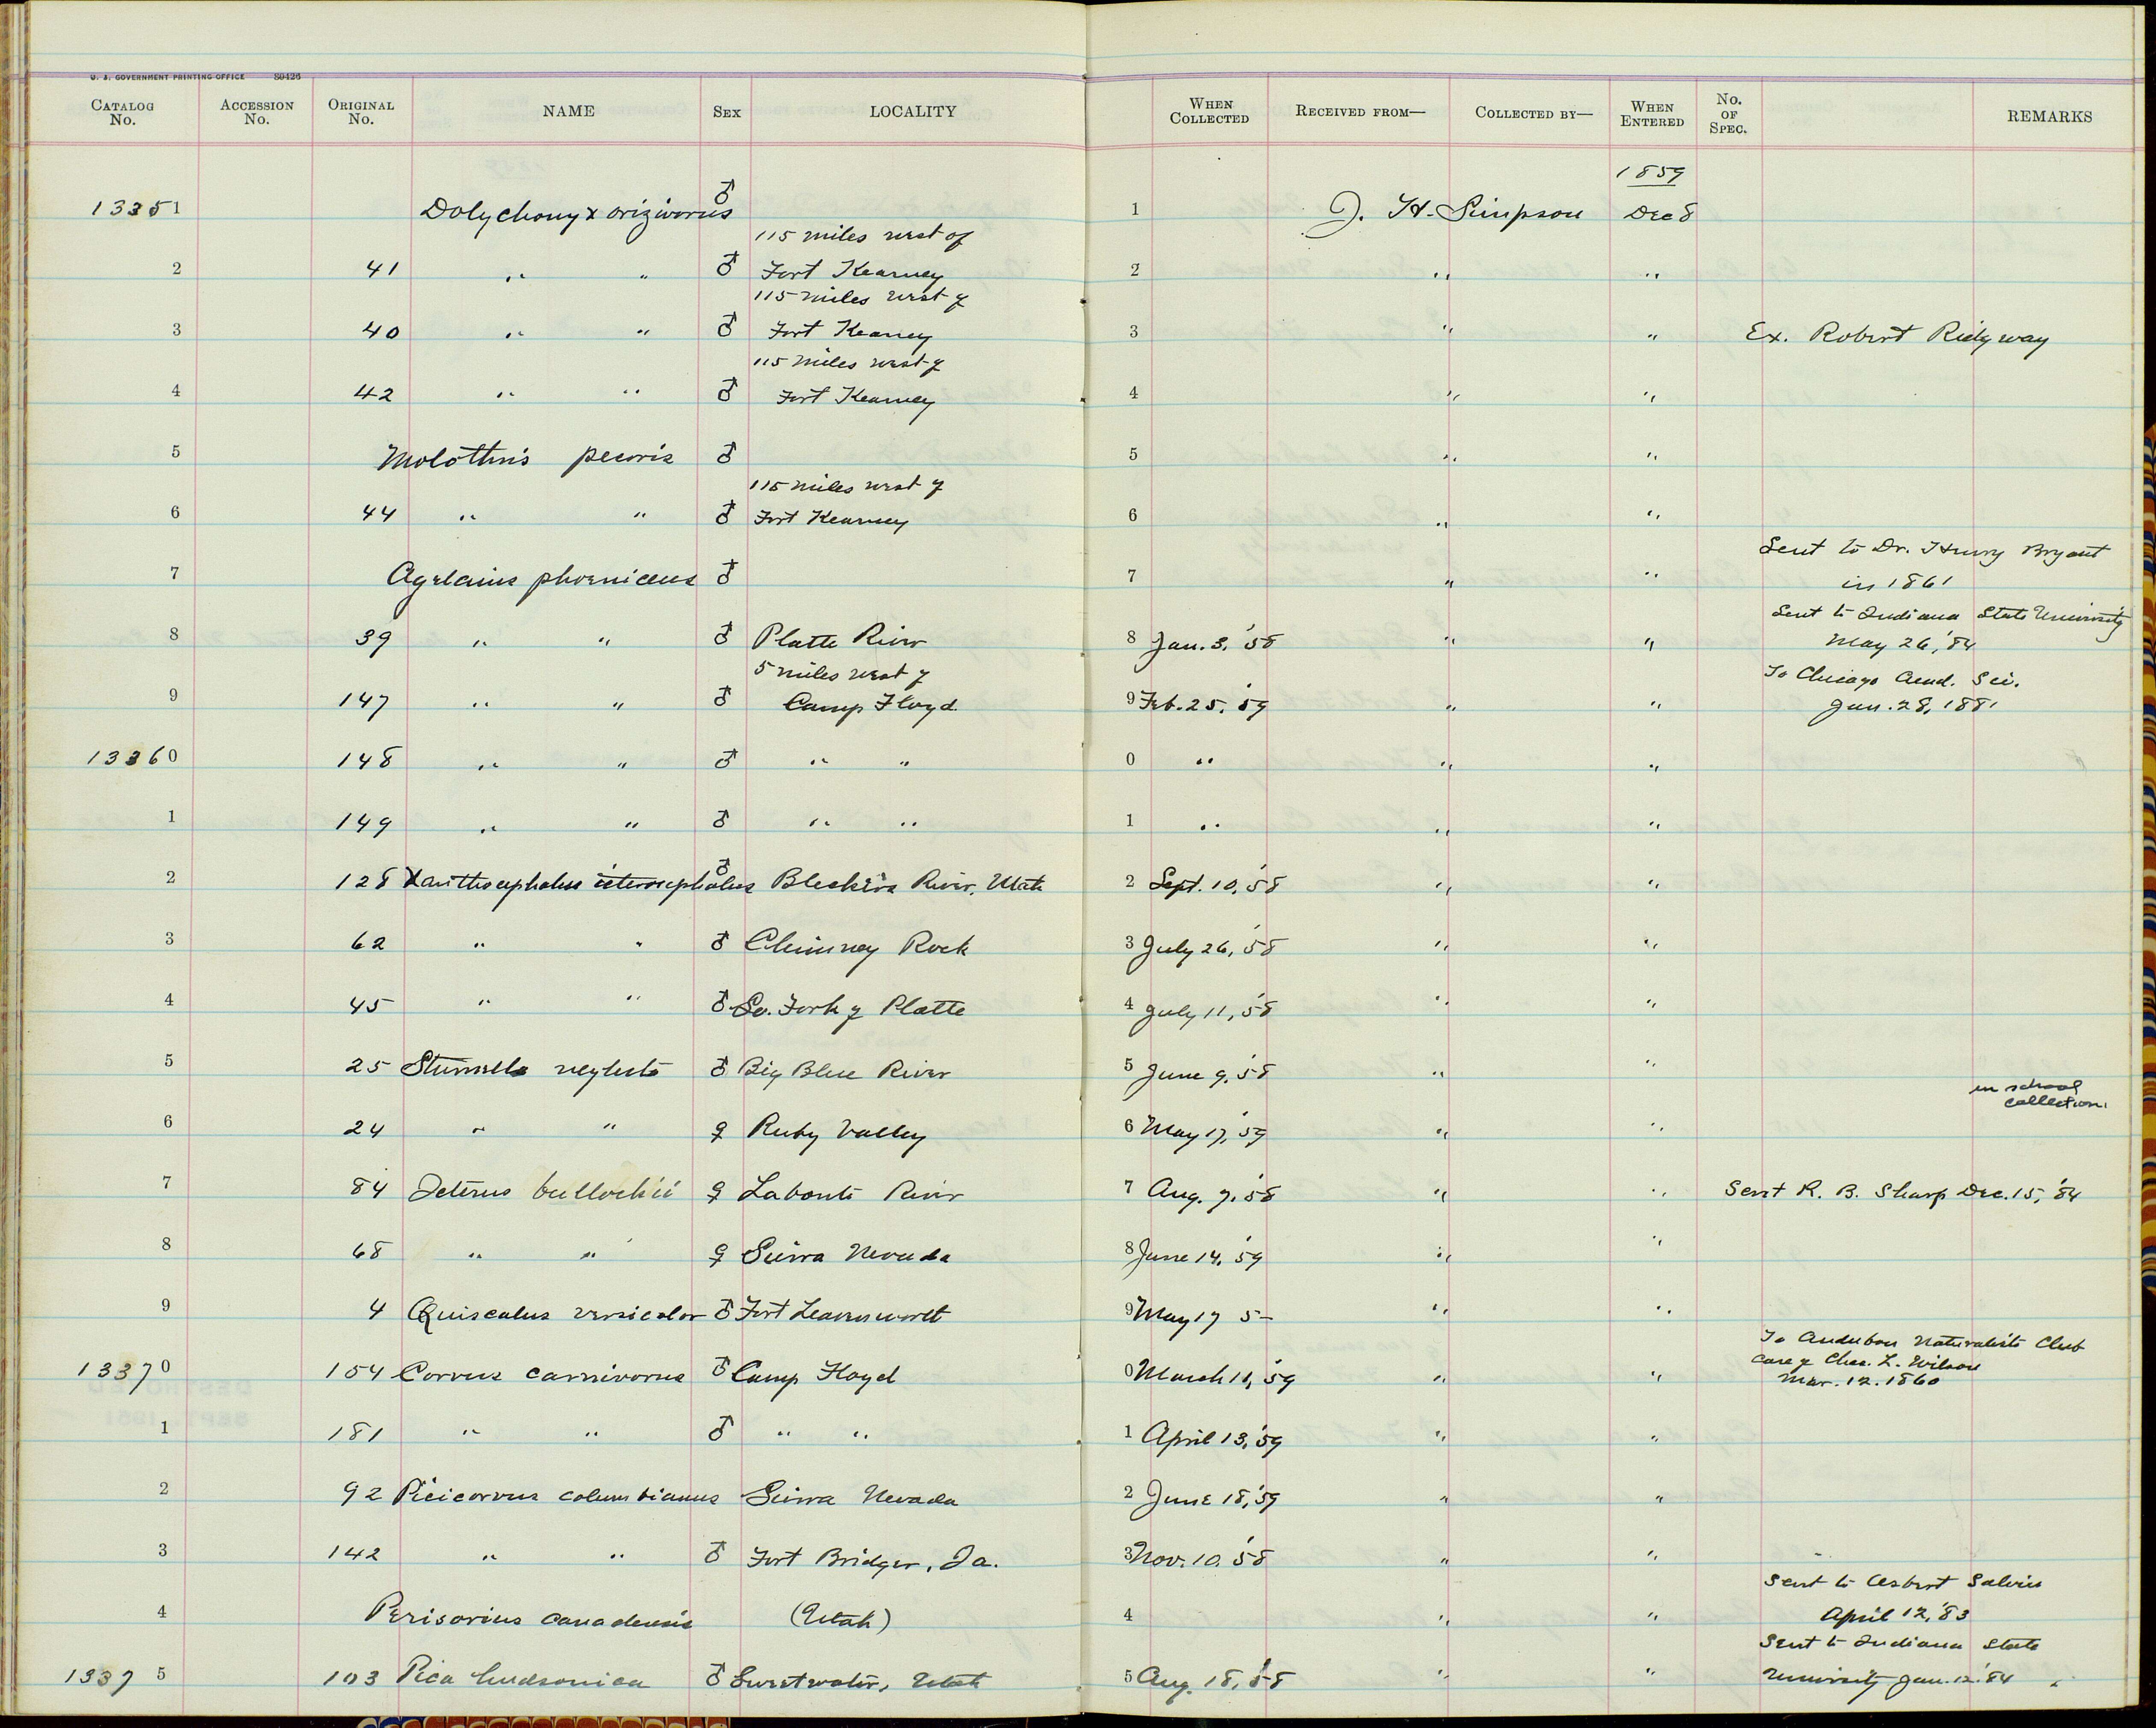 U. S. GOVERNMENT PRINTING OFFICE 80426
CATALOG No. ACCESSION No. ORIGINAL No. NAME SEX LOCALITY WHEN COLLECTED RECEIVED FROM— COLLECTED BY— WHEN ENTERED No. OF SPEC. REMARKS
1859
13351 Dolychonyx orizivorus ♂ 1 J. H. Simpson Dec 8
115 miles west of
2 41 " " ♂ Fort Kearney 2 " "
115 miles west of
3 40 " " ♂ Fort Kearney 3 " " Ex. Robert Ridgway
115 miles west of
4 42 " " ♂ Fort Kearney 4 " "
5 Molothrus pecoris ♂ 5 " "
115 miles west of
6 44 " " ♂ Fort Kearney 6 " "
Sent to Dr. Henry Bryant
7 Agelaius phoeniceus ♂ 7 " " in 1861
Sent to Indiana State University
8 39 " " ♂ Platte River 8 Jan. 3, '58 " " May 26, '84
5 miles west of To Chicago Acad. Sci.
9 147 " " ♂ Camp Floyd 9 Feb. 25, '59 " " Jan. 28, 1881
13360 148 " " ♂ " " 0 " " "
1 149 " " ♂ " " 1 " " "
2 128 Xanthocephalus icterocephalus ♂ River, Utah 2 Sept. 10, '58 " "
3 62 " " ♂ Chimney Rock 3 July 26, '58 " "
4 45 " " ♂ So. Fork of Platte 4 July 11, '58 " "
5 25 Sturnella neglecta ♂ Big Blue River 5 June 9, '58 " "
in school
collection.
6 24 " " ♀ Ruby Valley 6 May 17, '59 " "
7 84 Icterus bullockii ♀ Labonte River 7 Aug. 7, '58 " " Sent R. B. Sharp Dec. 15, '84
8 68 " " ♀ Sierra Nevada 8 June 14, '59 " "
9 4 Quiscalus versicolor ♂ Fort Leavenworth 9 May 17 5- " "
To Audubon Naturalists Club
care of Chas. L. Wilson
13370 154 Corvus carnivorus ♂ Camp Floyd 0 March 11, '59 " " Mar. 12. 1860
1 181 " " ♂ " " 1 April 13, '59 " "
2 92 Picicorvus columbianus Sierra Nevada 2 June 18, '59 " "
3 142 " " ♂ Fort Bridger, Ja. 3 Nov. 10. '58 " "
Sent to
4 Perisorius canadensis (Utah) 4 " " April 12, '83
Sent to Indiana State
13375 103 Pica hudsonica ♂ Sweetwater, Utah 5 Aug. 18, '58 " " University Jan. 12. '84